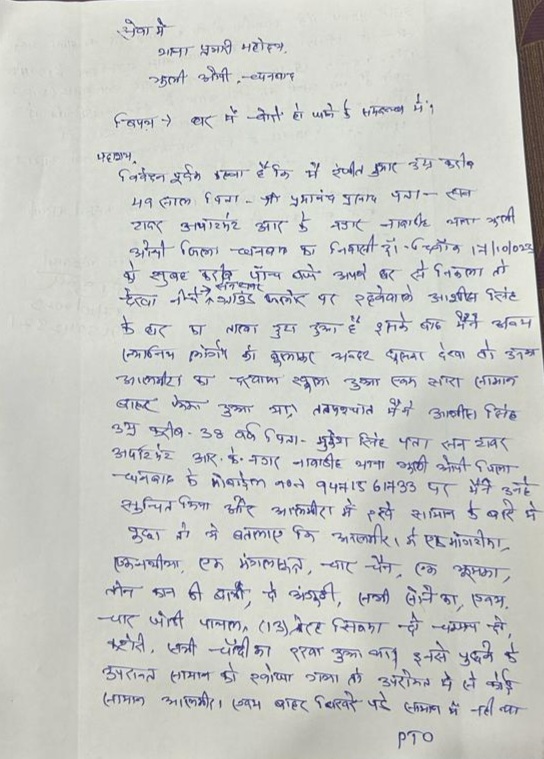 सेवा में
थाना प्रभारी महोदय,
भुली ओपी, धनबाद
विषय → घर में चोरी हो जाने के सम्बन्ध में।
महाशय,
निवेदन पूर्वक कहना है कि मैं रंजीत कुमार उम्र करीब
49 साल पिता - श्री प्रमानंद प्रसाद पता - सन
टावर अपार्टमेंट आर के नगर नावाडीह थाना भुली
ओपी जिला धनबाद का निवासी हूँ। दिनांक
के सुबह करीब पाँच बजे अपने घर से निकला तो
देखा नीचे ग्राउंड फ्लोर पर रहनेवाले आशीष सिंह
के घर का ताला टुटा हुआ है इसके बाद मैंने अन्य
स्थानीय लोगों को बुलाकर अन्दर घुसकर देखा तो उनका
आलमीरा का दरवाजा खुला हुआ एवम सारा सामान
बाहर फेका हुआ था, ततपश्चात मैंने आशीष सिंह
उम्र करीब - 38 वर्ष पिता - मुकेश सिंह पता सन टावर
अपार्टमेंट आर. के. नगर नावाडीह थाना भुली ओपी जिला
धनबाद के मोबाईल न०- 9471561733 पर मैंने उन्हे
सुचित किया और आलमीरा में रखे सामान के बारे में
पुछा तो वे बतलाए कि आलमीरा में एक मांगटीका,
एक नथीया, एक मंगलसूत्र, चार चैन, एक झुमका,
तीन कान की बाली, दो अंगुठी, सभी सोने का, एवम
चार जोड़ी पायल, (13) तेरह सिक्का दो चम्मच दो,
कटोरी, सभी चाँदी का रखा हुआ था। इनसे पुछने के
उपरान्त सामान को खोजा गया तो उपरोक्त में से कोई
सामान आलमीरा एवम बाहर बिखरे पड़े सामान में नही था
PTO